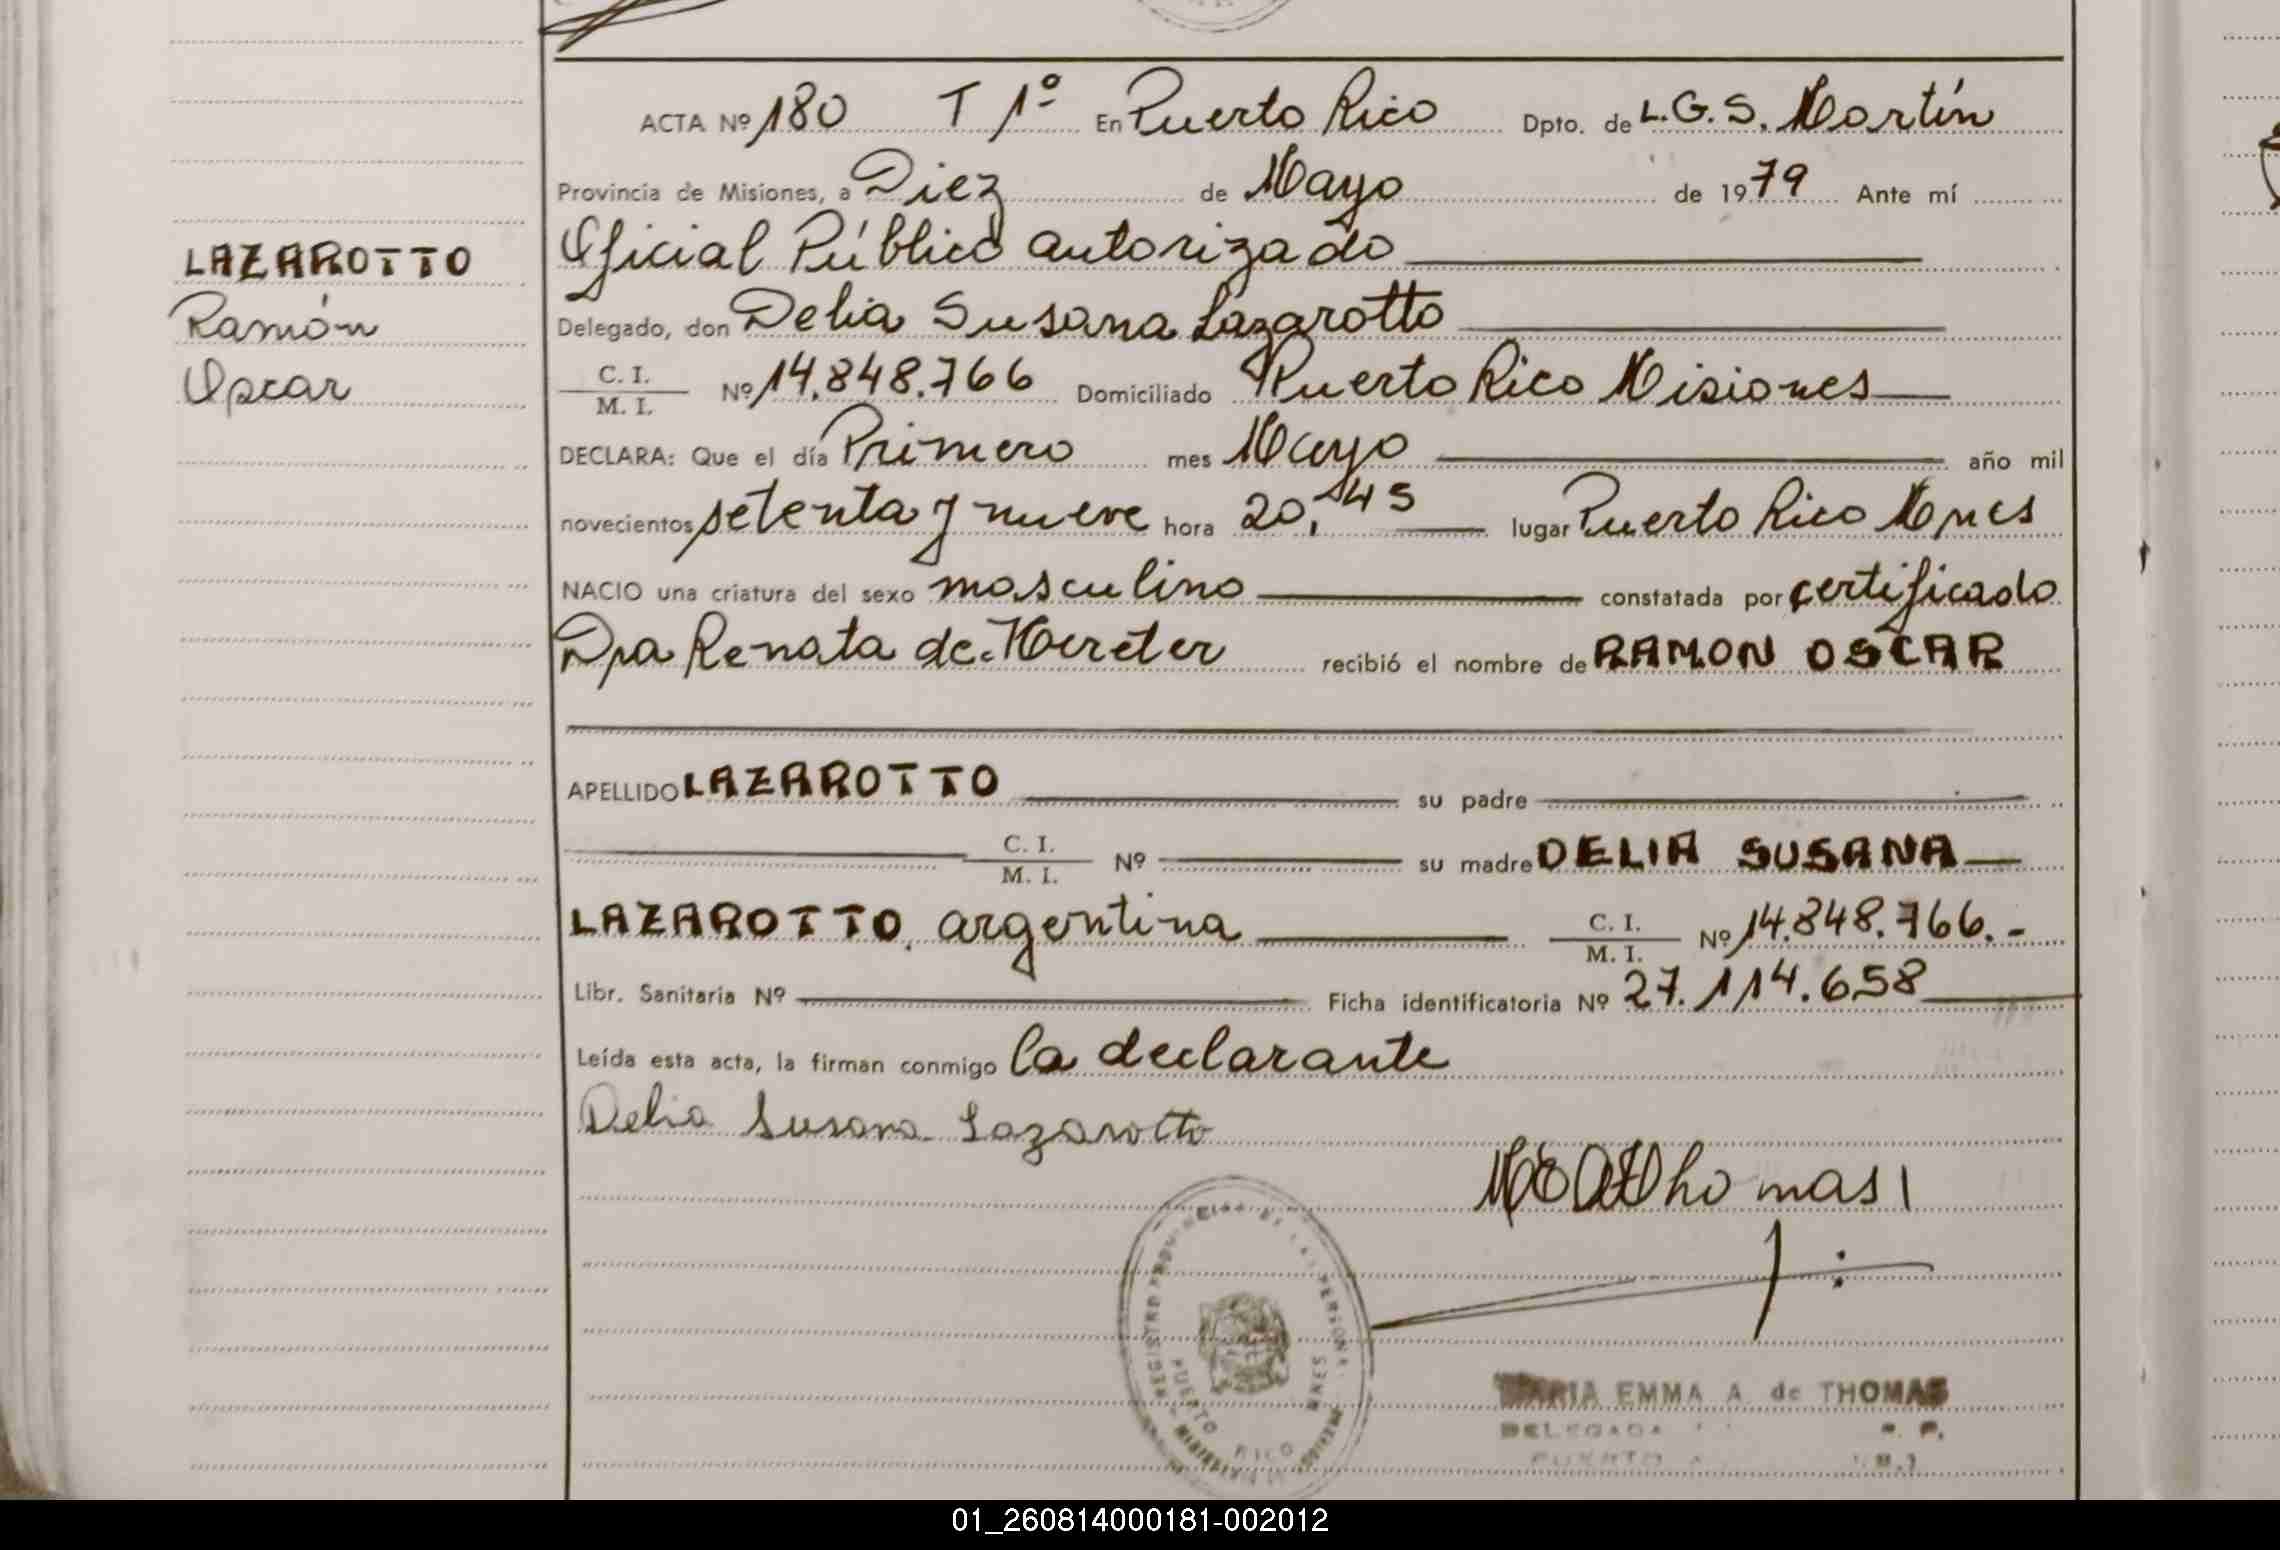 ACTA Nº 180 T 1º En Puerto Rico Dpto. de L.G.S. Martín
Provincia de Misiones, a Diez de Mayo de 1979 Ante mí
Oficial Público autorizado
LAZAROTTO
Delegado, don Delia Susana Lazarotto
Ramón
C. I.
M. I. Nº 14.848.766 Domiciliado Puerto Rico Misiones
Oscar
DECLARA: Que el día Primero mes Mayo año mil
novecientos setenta y nueve hora 20,45 lugar Puerto Rico Mnes
NACIO una criatura del sexo masculino constatada por certificado
Dra Renata de recibió el nombre de RAMON OSCAR
APELLIDO LAZAROTTO su padre
C. I.
M. I. Nº su madre DELIA SUSANA
LAZAROTTO, argentina C. I.
M. I. Nº 14.848.766.-
Libr. Sanitaria Nº Ficha identificatoria Nº 27.114.658
Leída esta acta, la firman conmigo la declarante
Delia Susana Lazarotto
MEAdThomas
REGISTRO PROVINCIAL DE LAS PERSONAS
PUERTO RICO MNES
MARIA EMMA A. de THOMAS
DELEGADA
PUERTO
01_260814000181-002012